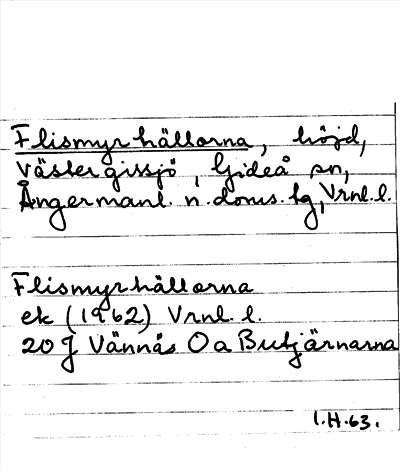 Flismyrhällorna, höjd,
Västergissjö, Gideå sn,
Ångermanl. n. doms. tg, Vrnl. l.
Flismyrhällorna
ek (1962) Vrnl. l.
20 J Vännäs O a Butjärnarna
I.H.63.